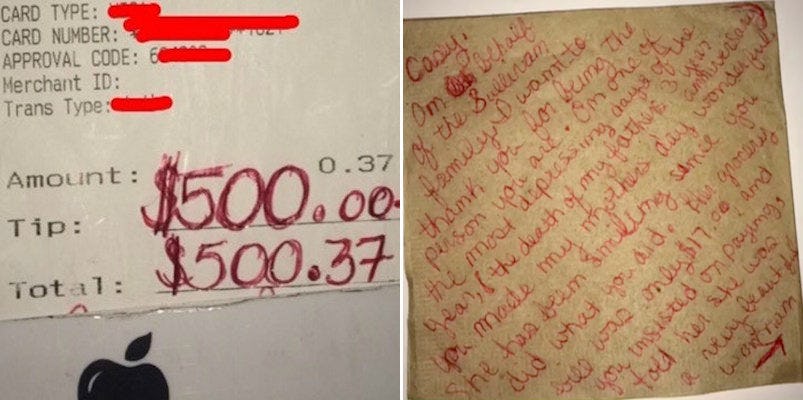 CARD TYPE:
CARD NUMBER:
APPROVAL CODE: 6
Merchant ID:
Trans Type:
Amount: 0.37
Tip: $500.00
Total: $500.37
Casey,
On behalf
of the Sullivan
family I want to
thank you for being the
person you are. On one of
the most depressing days of the
year, the death of my fathers 3 year anniversary
you made my mothers day wonderful
She has been smiling since you
did what you did. Her grocery
bill was only $17.00 and
you insisted on paying,
told her she was
a very beautiful
woman